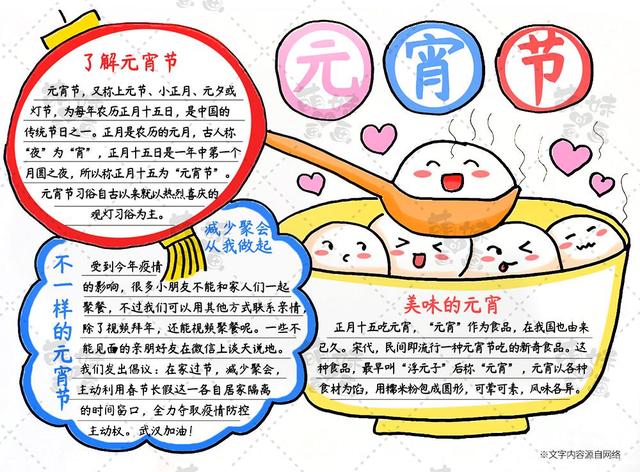 元宵节
了解元宵节
元宵节，又称上元节、小正月、元夕或
灯节，为每年农历正月十五日，是中国的
传统节日之一。正月是农历的元月，古人称
“夜”为“宵”，正月十五日是一年中第一个
月圆之夜，所以称正月十五为“元宵节”。
元宵节习俗自古以来就以热烈喜庆的
观灯习俗为主。
减少聚会
从我做起
不一样的元宵节
受到今年疫情
的影响，很多小朋友不能和家人们一起
聚餐，不过我们可以用其他方式联系亲情，
除了视频拜年，还能视频聚餐呢。一些不
能见面的亲朋好友在微信上谈天说地。
我们发出倡议：在家过节，减少聚会，
主动利用春节长假这一各自居家隔离
的时间窗口，全力夺取疫情防控
主动权。武汉加油！
美味的元宵
正月十五吃元宵，“元宵”作为食品，在我国也由来
已久。宋代，民间即流行一种元宵节吃的新奇食品。这
种食品，最早叫“浮元子”后称“元宵”，元宵以各种
食材为馅，用糯米粉包成圆形，可荤可素，风味各异。
※文字内容源自网络